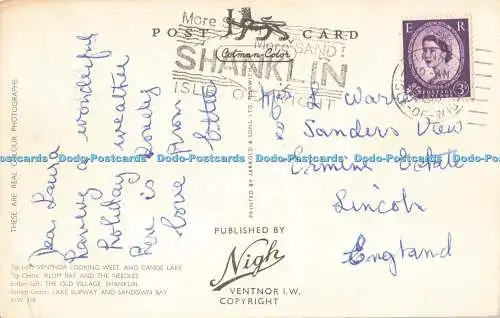 POST CARD
Cotman-Color
More S
More SAND!
SHANKLIN
ISLE OF WIGHT
E R
POSTAGE
REVENUE
3D
OF-WIG
Dear Laura
Having a wonderful
holiday weather
here is lovely
love from
L War
Sanders View
Ermine Estate
Lincoln
England
THESE ARE REAL COLOUR PHOTOGRAPHS
PRINTED BY JARROLD & SONS LTD. NORWICH
PUBLISHED BY
Nigh
VENTNOR I.W.
COPYRIGHT
Top Left: VENTNOR LOOKING WEST, AND CANOE LAKE
Top Centre: ALUM BAY AND THE NEEDLES
Bottom Left: THE OLD VILLAGE, SHANKLIN
Bottom Centre: LAKE SLIPWAY AND SANDOWN BAY
KIW 378
Dodo-Postcards Dodo-Postcards Dodo-Postcards Dodo-Postcards Dodo-Postcards Dodo-Postcards